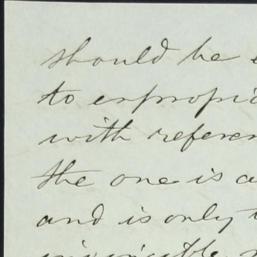 should be
to expropri
with referen
the one is a
and is only